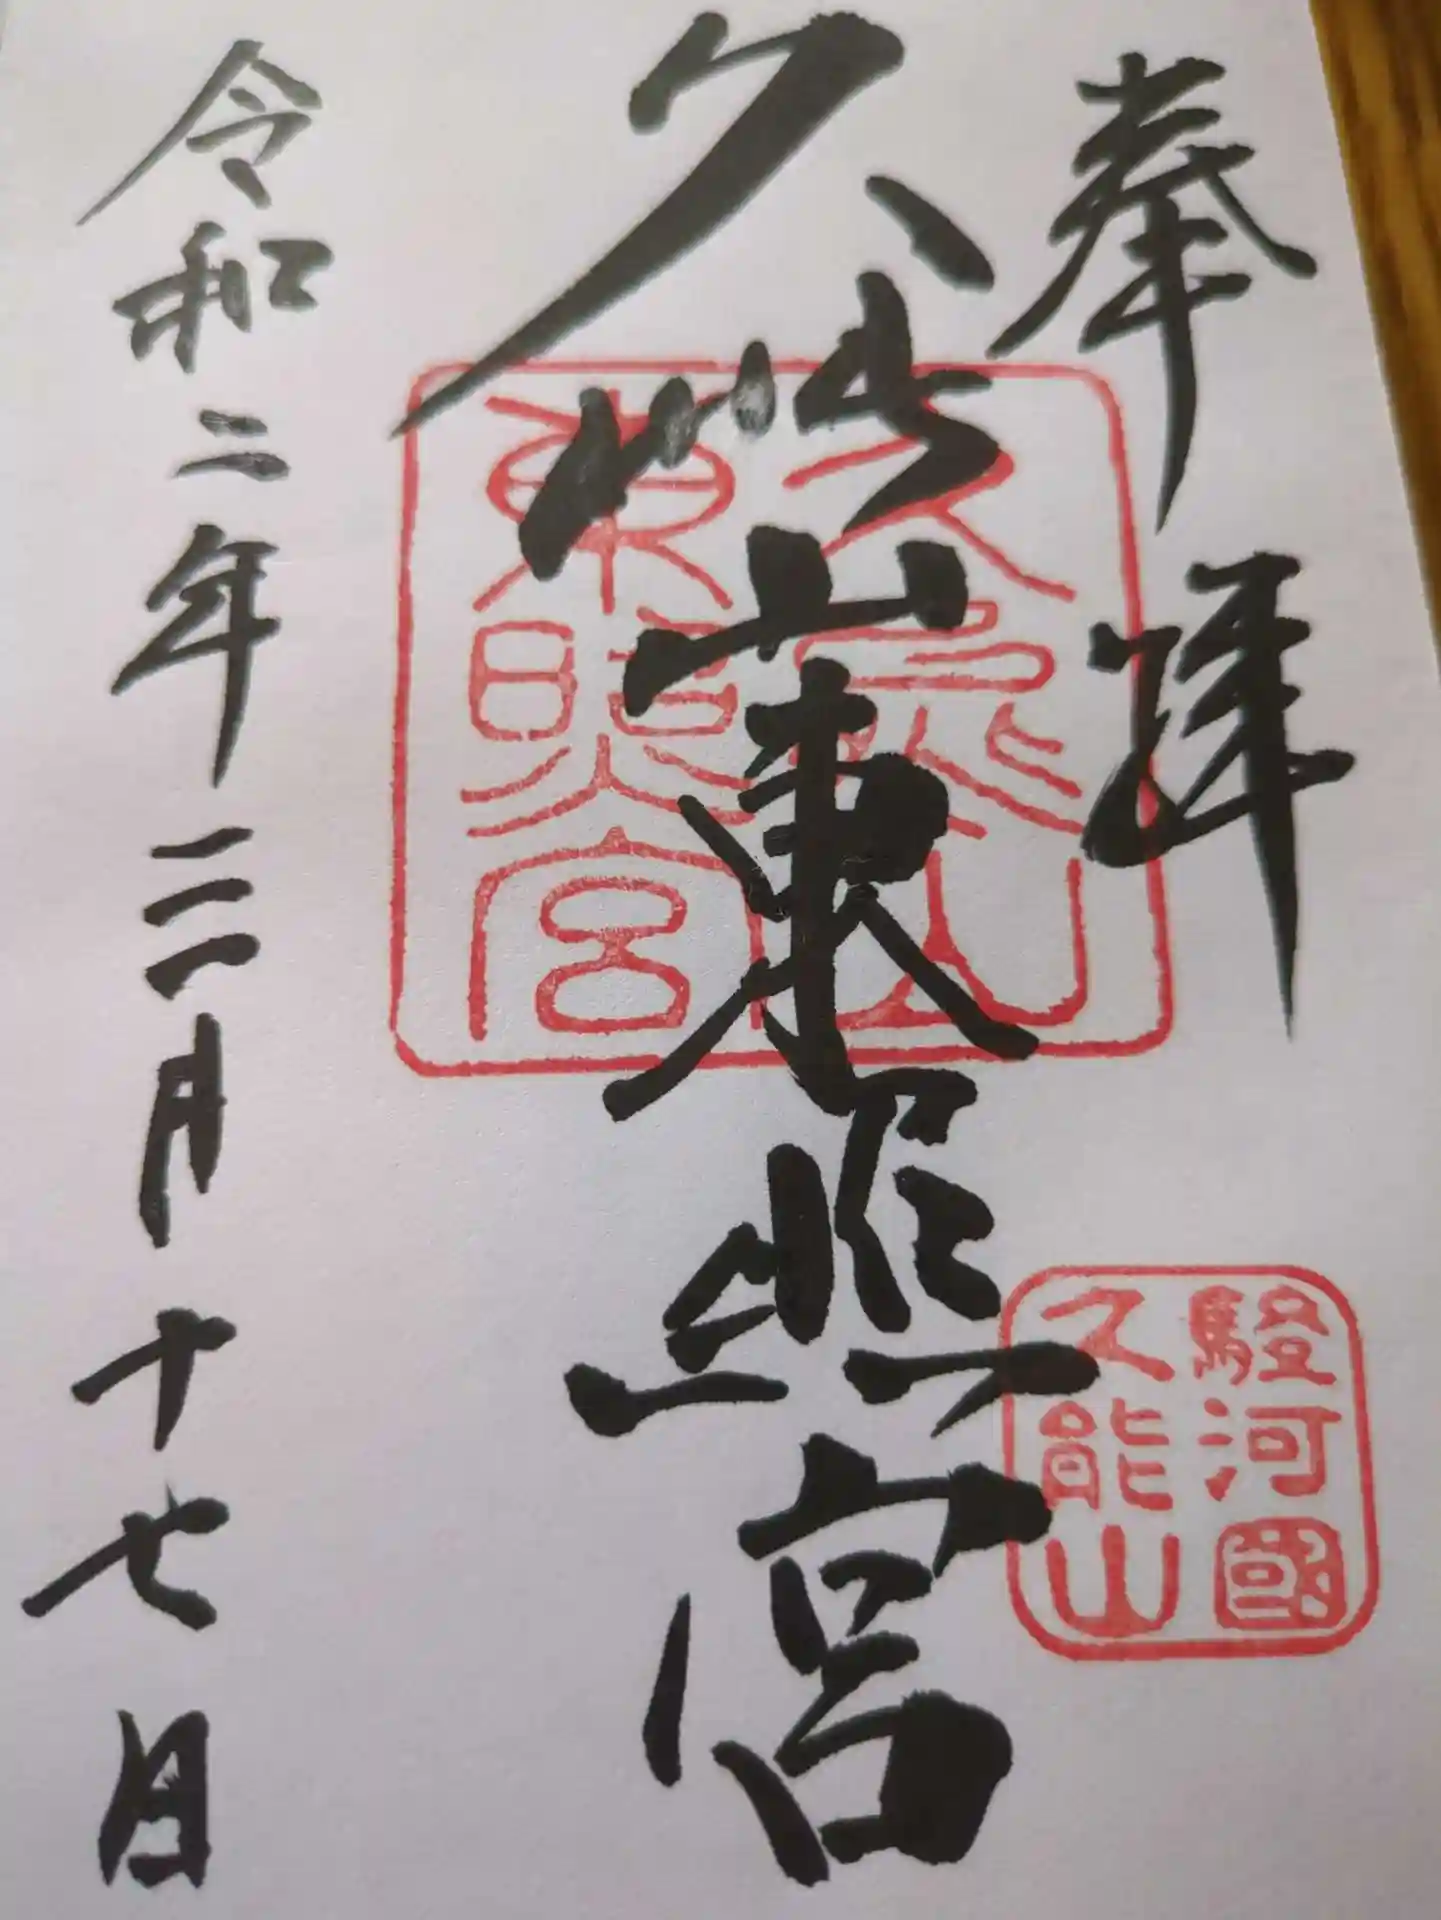 奉拝
久能山東照宮
令和二年三月十七日
久能山
東照宮
駿河國
久能山